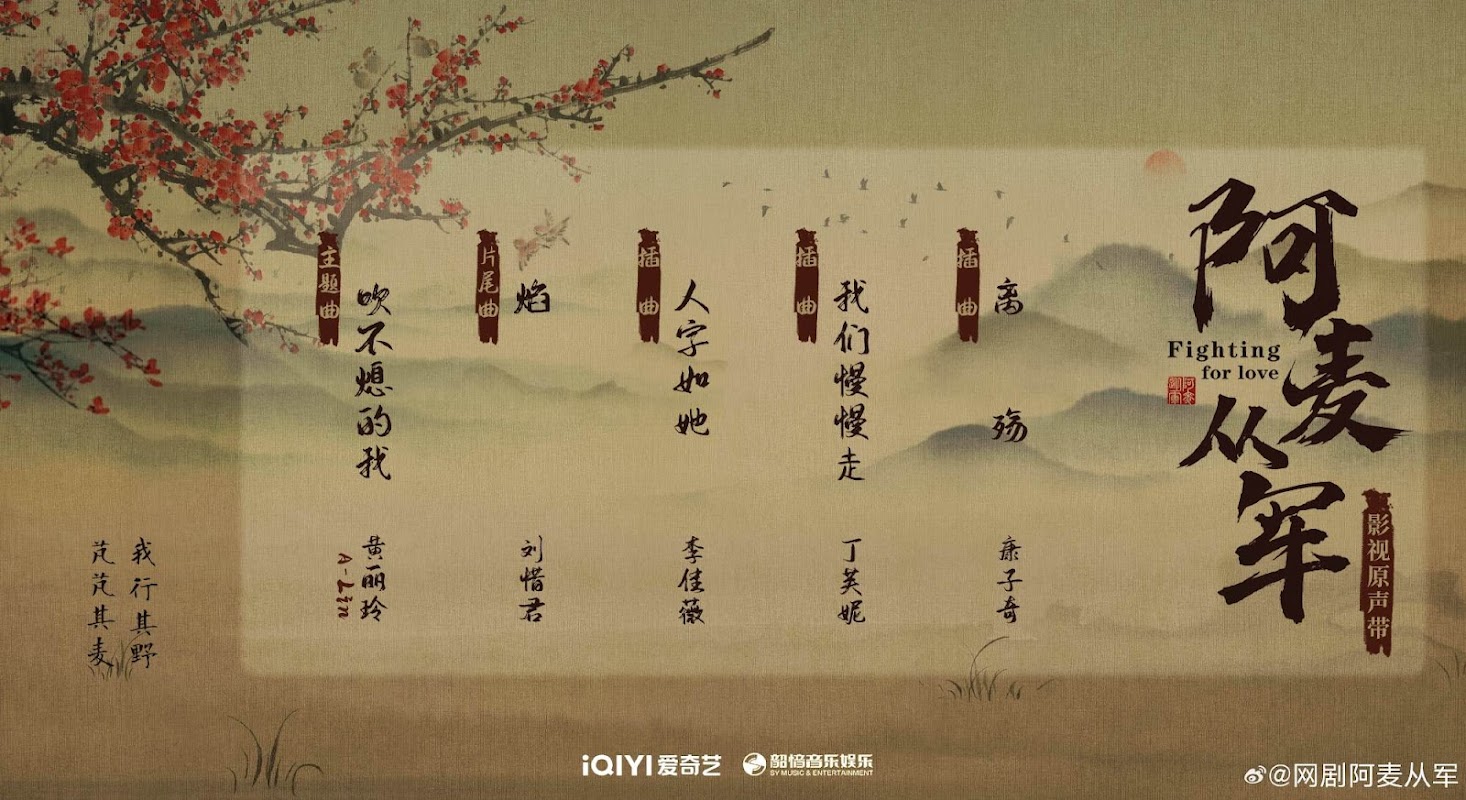 阿麦从军
Fighting
for love
影视原声带
插曲
离殇
康子奇
插曲
我们慢慢走
丁芙妮
插曲
人字如她
李佳薇
片尾曲
焰
刘惜君
主题曲
吹不熄的我
黄丽玲
A-Lin
我行其野
芃芃其麦
iQIYI 爱奇艺
韶愔音乐娱乐
SY MUSIC & ENTERTAINMENT
@网剧阿麦从军